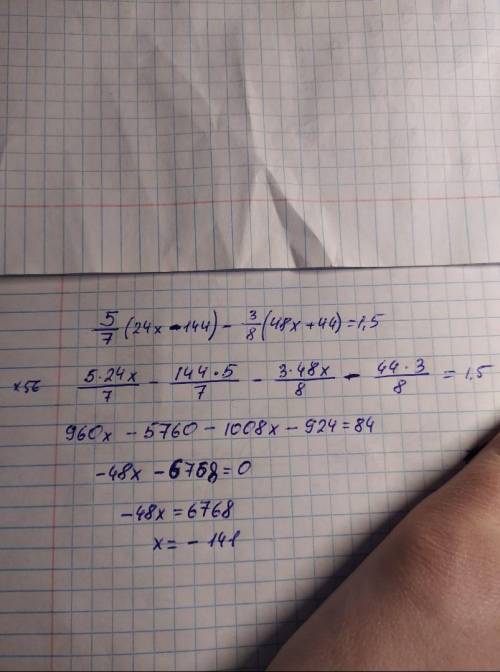 5/7 (24x - 144) - 3/8 (48x + 44) = 1,5
×56 5·24x/7 - 144·5/7 - 3·48x/8 - 44·3/8 = 1,5
960x - 5760 - 1008x - 924 = 84
-48x - 6768 = 0
-48x = 6768
x = - 141